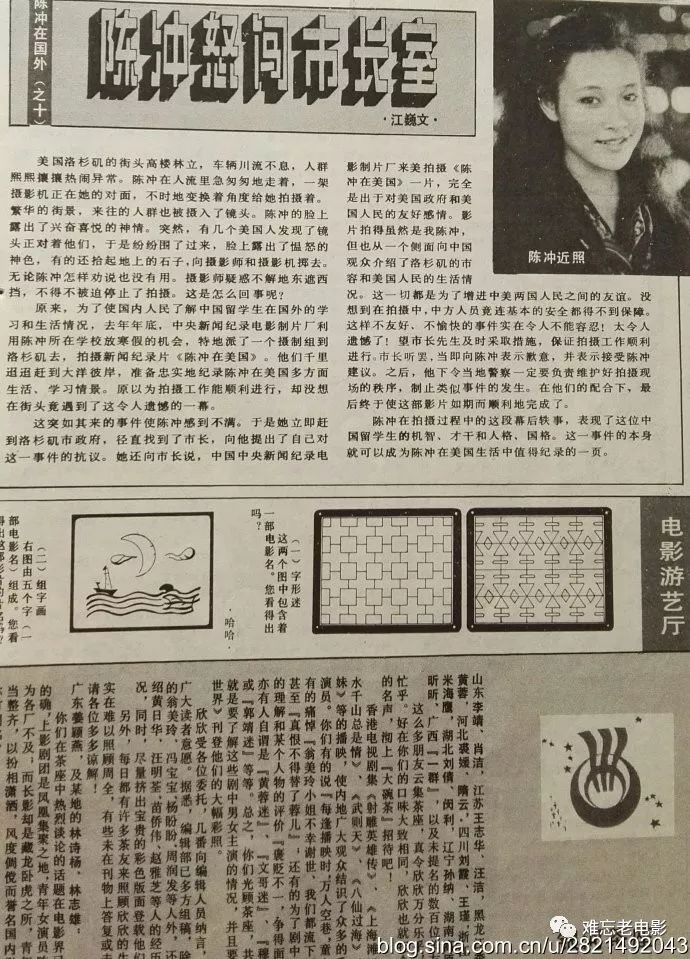 陈冲在国外（之十）
陈冲怒闯市长室
·江巍文·
美国洛杉矶的街头高楼林立，车辆川流不息，人群
熙熙攘攘热闹异常。陈冲在人流里急匆匆地走着，一架
摄影机正在她的对面，不时地变换着角度给她拍摄着。
繁华的街景，来往的人群也被摄入了镜头。陈冲的脸上
露出了兴奋喜悦的神情。突然，有几个美国人发现了镜
头正对着他们，于是纷纷围了过来，脸上露出了愠怒的
神色，有的还拾起地上的石子，向摄影师和摄影机掷去。
无论陈冲怎样劝说也没有用。摄影师疑惑不解地东遮西
挡，不得不被迫停止了拍摄。这是怎么回事呢？
原来，为了使国内人民了解中国留学生在国外的学
习和生活情况，去年年底，中央新闻纪录电影制片厂利
用陈冲所在学校放寒假的机会，特地派了一个摄制组到
洛杉矶去，拍摄新闻纪录片《陈冲在美国》。他们千里
迢迢赶到大洋彼岸，准备忠实地纪录陈冲在美国多方面
生活、学习情景。原以为拍摄工作能顺利进行，却没想
在街头竟遇到了这令人遗憾的一幕。
这突如其来的事件使陈冲感到不满。于是她立即赶
到洛杉矶市政府，径直找到了市长，向他提出了自己对
这一事件的抗议。她还向市长说，中国中央新闻纪录电
影制片厂来美拍摄《陈
冲在美国》一片，完全
是出于对美国政府和美
国人民的友好感情。影
片拍得虽然是我陈冲，
但也从一个侧面向中国
观众介绍了洛杉矶的市
容和美国人民的生活情
况。这一切都是为了增进中美两国人民之间的友谊。没
想到在拍摄中，中方人员竟连基本的安全都得不到保障。
这样不友好、不愉快的事件实在令人不能容忍！太令人
遗憾了！望市长先生及时采取措施，保证拍摄工作顺利
进行。市长听罢，当即向陈冲表示歉意，并表示接受陈冲
建议。之后，他下令当地警察一定要负责维护好拍摄现
场的秩序，制止类似事件的发生。在他们的配合下，最
后终于使这部影片如期而顺利地完成了。
陈冲在拍摄过程中的这段幕后轶事，表现了这位中
国留学生的机智、才干和人格、国格。这一事件的本身
就可以成为陈冲在美国生活中值得纪录的一页。
陈冲近照
电影游艺厅
（一）字形迷
这两个图中包含着
一部电影名。您看得出
吗？
·哈哈·
（二）组字画
右图由五个字（一
部电影名）组成。您看
山东李靖、肖洁，江苏王志华、汪洁，黑龙
黄蓉，河北裘媛、隋云，四川刘霞、王瑾，浙
米海鹰，湖北刘倩、闵利，辽宁孙纳，湖南
昕昕，广西『一群』，以及未提名的数百位
这么多朋友云集茶座，真令欣欣万分乐
忙乎。好在你们的口味大致相同，欣欣也就
的名声，沏上『大碗茶』招待吧！
香港电视剧集《射雕英雄传》、《上海滩
水千山总是情》、《武则天》、《八仙过海》
妹》等的播映，使内地广大观众结识了众多的
演员。你们有的说『每逢播映时，万人空巷，童
有的痛悼『翁美玲小姐不幸谢世，我们都流下
甚至『真恨不得替了蓉儿』，还有的为了剧中
的理解和某个人物的评价『褒贬不一，争得面
亦有人自谓是『黄蓉迷』、『文哥迷』、『穆
或『郭靖迷』等等。总之，你们光顾茶座，其
就是要了解这些剧中男女主演的情况，并且要
世界》刊登他们的大幅彩照。
欣欣受各位委托，几番向编辑人员纳言，
广大读者意愿。据悉，编辑部已多方组稿，除
的翁美玲、冯宝宝、杨盼盼、周润发等人外，还
绍黄日华、汪明荃、苗侨伟、赵雅芝等人的经历
况，同时，尽量挤出宝贵的彩色版面登载他们
另外，每日都有许多茶友来照顾欣欣的生
实在难以照顾周全，有些未在刊物上答复或未
请各位多多谅解！
广东姜颖燕，及某地的林诗杨、林志雄：
你们在茶座中热烈谈论的话题在电影界已
的确，上影剧团是凤凰集萃之地，青年女演员阵
为各厂不及；而长影却是藏龙卧虎之所，青
当整齐，以扮相潇洒，风度倜傥而誉名国内
难忘老电影
blog.sina.com.cn/u/2821492043